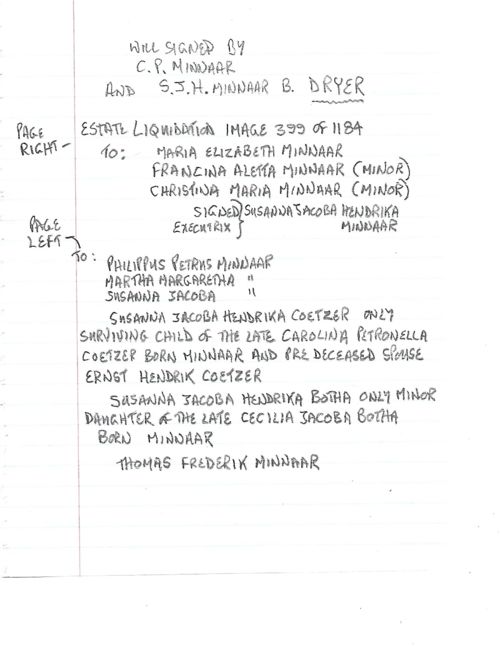 WILL SIGNED BY
C.P. MINNAAR
AND S.J.H. MINNAAR B. DRYER
PAGE RIGHT - ESTATE LIQUIDATION IMAGE 399 OF 1184
TO: MARIA ELIZABETH MINNAAR
FRANCINA ALETTA MINNAAR (MINOR)
CHRISTINA MARIA MINNAAR (MINOR)
SIGNED } SUSANNA JACOBA HENDRIKA
EXECUTRIX } MINNAAR
PAGE LEFT
TO: PHILIPPUS PETRUS MINNAAR
MARTHA MARGARETHA "
SUSANNA JACOBA "
SUSANNA JACOBA HENDRIKA COETZER ONLY
SURVIVING CHILD OF THE LATE CAROLINA PETRONELLA
COETZER BORN MINNAAR AND PRE DECEASED SPOUSE
ERNST HENDRIK COETZER
SUSANNA JACOBA HENDRIKA BOTHA ONLY MINOR
DAUGHTER OF THE LATE CECILIA JACOBA BOTHA
BORN MINNAAR
THOMAS FREDERIK MINNAAR